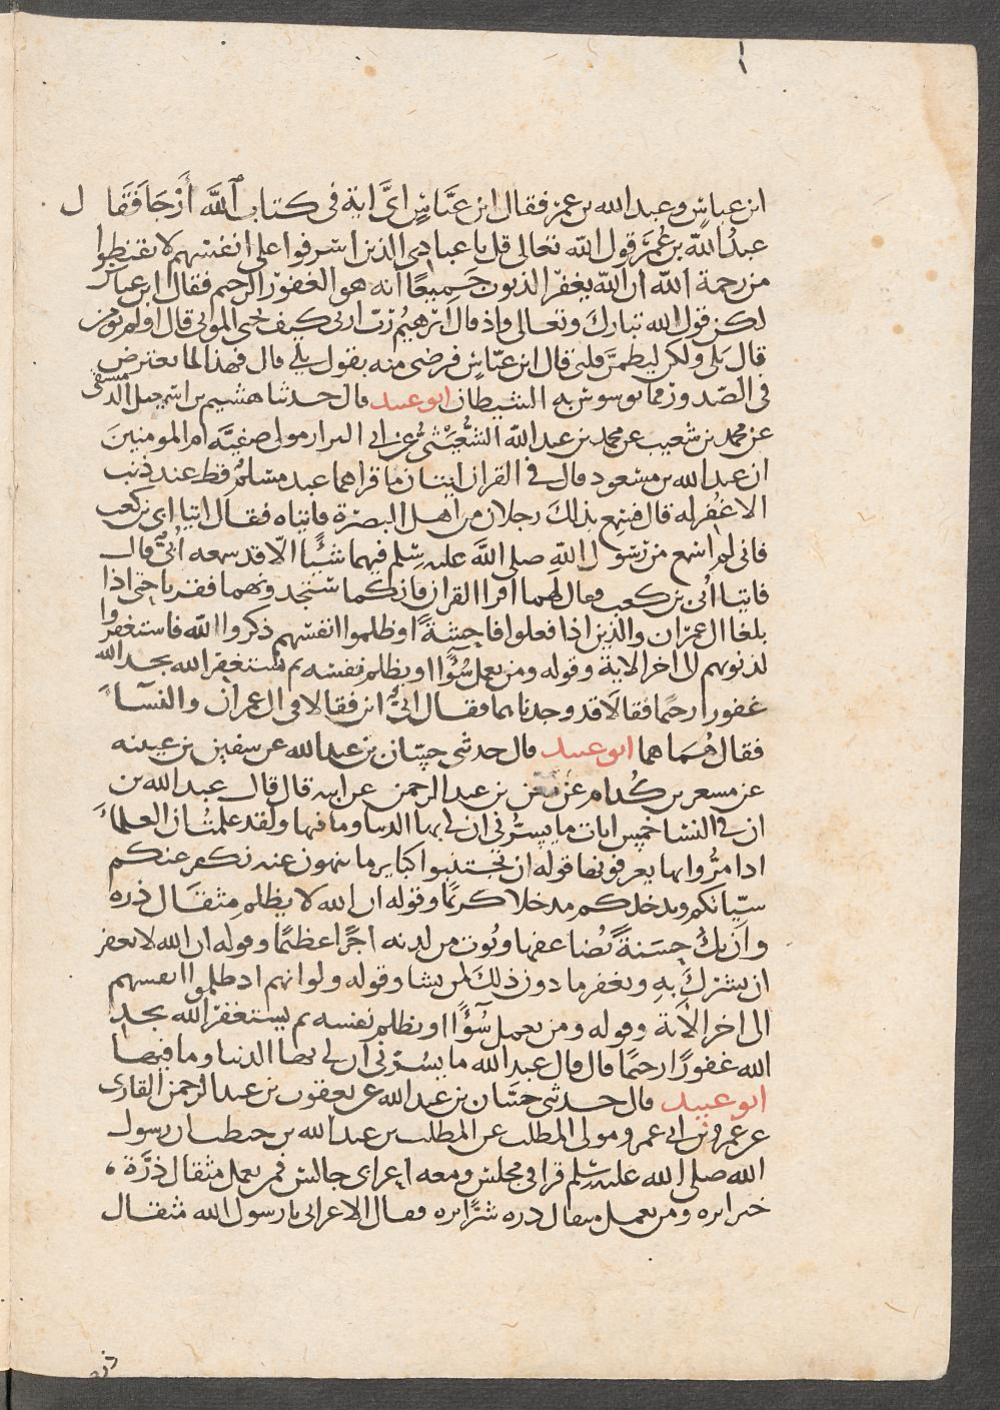 ابن عباس وعبد الله بن عمر فقال ابن عَبَّاسٍ اىّ اية فى كتاب اللَّه أَرْجَا فَقَال
عبدُ اللَّه بن عُمَر قول الله تعالى قل يا عبادى الذين اسرفوا على انفسهم لا تقنطوا
من رحمة الله ان الله يغفر الذنوب جَمِيعًا انه هو الغفور الرحيم فقال ابن عباس
لكن قول الله تبارك وتعالى واذ قال ابرهيم رب ارنى كيف تحى الموتى قال اولم تومن
قال بَلى ولكن ليطمئن قلبى قال ابن عبّاسٍ فرضى منه بقول بلى قال فهذا لما يعترض
فى الصّدور مما يوسوس به الشيطان ابو عبيد قال حدثنا هشيم بن اسمعيل الدمسقى
عن محمد بن شعيب عن محمد بن عبد اللَّه الشُّعَيْثى عن ابى البراز مولى صفيَّه ام المومنينَ
ان عبد الله بن مسعود قال فى القران ايتان ما قراهما عبد مسْلم قط عند ذنب
الا غُفر له قال فسَمِع بذلكَ رجلان من اهل البصرة فاتياه فقال ايتيا ابى بن كعب
فانى لم اسمع من رَسُول اللّهِ صلى اللَّه عليه وسلم فيهما شَيْئًا الّا قد سمعه اُبىّ قال
فاتيا اُبى بن كعب فقال لهما اقرا القران فانكما ستجدونهما فقرءا حتى اذا
بلغا ال عِمْران والذين اذا فعلوا فاحِشَةً او ظلموا انفسَهم ذكروا اللّه فاستغفروا
لذنوبهم الى اخر الاية وقوله ومن يعمل سُوْٓءًا او يظلم نفسَه ثم يَستغفر الله يجد الله
غفورا رحيمًا فقالَا قد وجدناهما فقال ابىٌّ اين فقالا فى ال عمران والنسَآءِ
فقال هُمَا هما ابو عبيد قال حدثنى حسّان بن عبد الله عن سفين بن عيينه
عن مسعر بن كُدام عن مَعْن بن عبد الرحمن عن ابيه قال قال عبد الله بن
ان فى النسَا خمس ايات ما يسرُّنى ان لى بها الدنيا وما فيها ولقد علمتُ ان العلمآءَ
اذا مرُّوا بها يعرفونها قوله ان تجتنبوا كباير ما تنهون عنه نكفر عنكم
سيّاتكم وندخلكم مدخلا كريمًا وقوله ان الله لا يظلم مثقَال ذره
وان تكُ حسَنةً يُضاعفها ويُوت من لدنه اجرًا عظيمًا وقوله ان الله لا يغفر
ان يشرك بهِ ويغفر ما دون ذلكَ لمن يشا وقوله ولو انهم اذ ظلموا انفسهم
الى اخر الاَية وقوله ومن يعمل سُوْٓءًا او يظلم نفسه ثم يستغفر الله يجد
الله غفورًا رحيمًا قال قال عبد الله ما يسُرّنى ان لى بها الدنيا وما فيها
ابو عبيد قال حدثنى حسَّان بن عبد الله عن يعقوب بن عبد الرحمن القارى
عن عَمرو بن ابى عمرو مولى المطلب عن المطلب بن عبد الله بن حنطب ان رسول
الله صلى الله عليه وسلم قرا فى مجلس ومعه اعرابى جالس فمن يعمل مثقال ذَرَّة
خيرا يره ومن يعمل مثقال ذره شرًّا يره فقال الاعرابى يا رسول الله مثقال
ذره